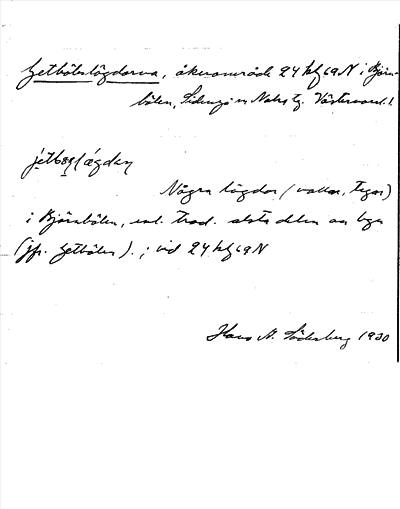 Getbölslägdorna, åkerområde 24 hfg 69 N i Björn-
bölen, Sidensjö sn Nolas tg. Västernorrl. l.
Några lägdor (vallar, tegar)
i Björnbölen, enl. trad. älsta delen av byn
(jfr. Getbölen).; vid 24 hfg 69 N
Hans N. Söderberg 1930